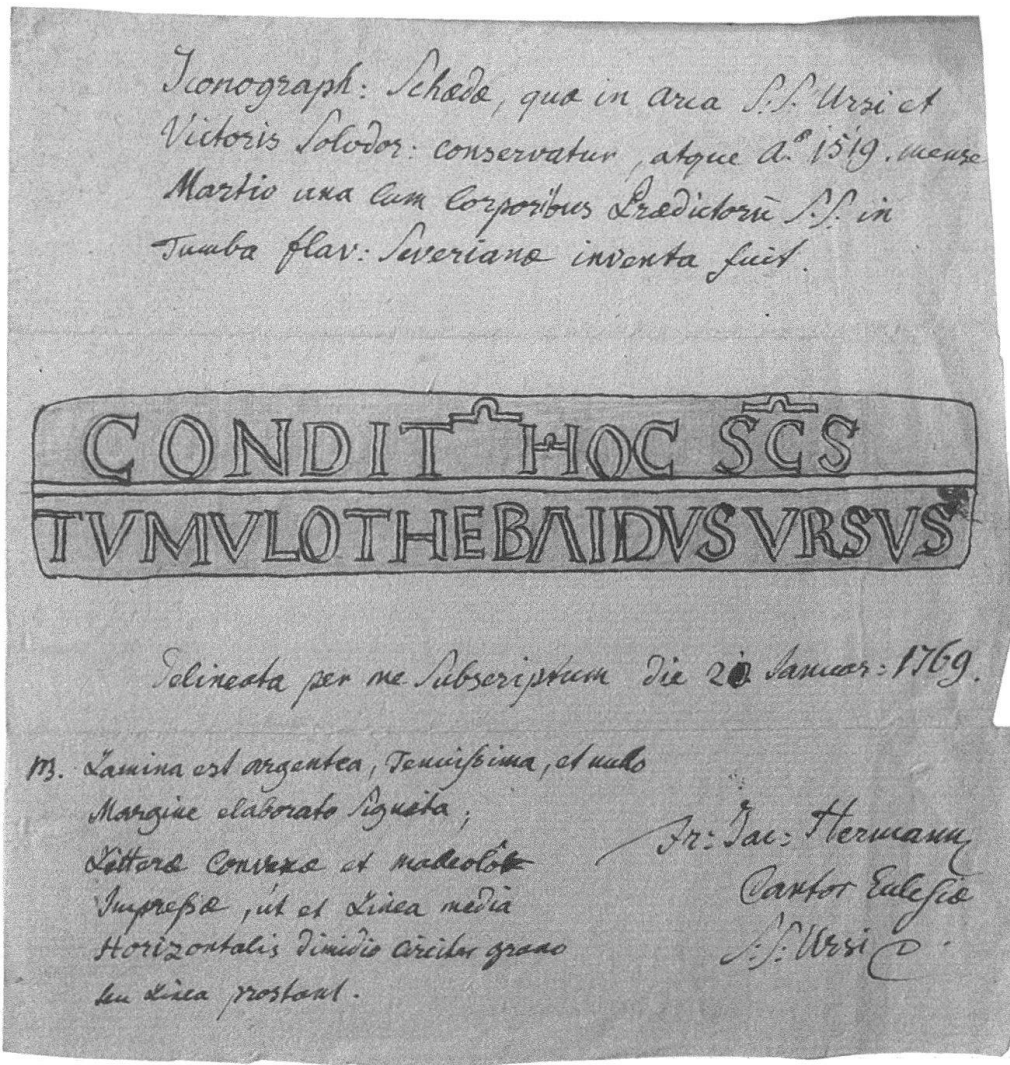 Iconograph: Schædæ, quæ in arca S.S. Ursi et
Victoris Solodor: conservatur, atque Aº 1519. mense
Martio una cum Corporibus Prædictorũ S.S. in
Tumba flav: Severianæ inventa fuit.
CONDIT HOC SCS
TVMVLOTHEBAIDVS VRSVS
Delineata per me Subscriptum die 20 Januar: 1769.
Lamina est argentea, Tenuissima, et nullo
Margine elaborato Signata;
Litteræ Convexæ et
Impressæ, út et Linea media
Horizontalis dimidio Circiter grano
seu Linea prostant.
Fr: Jac: Hermann
Cantor Eclesiæ
S.S. Ursi